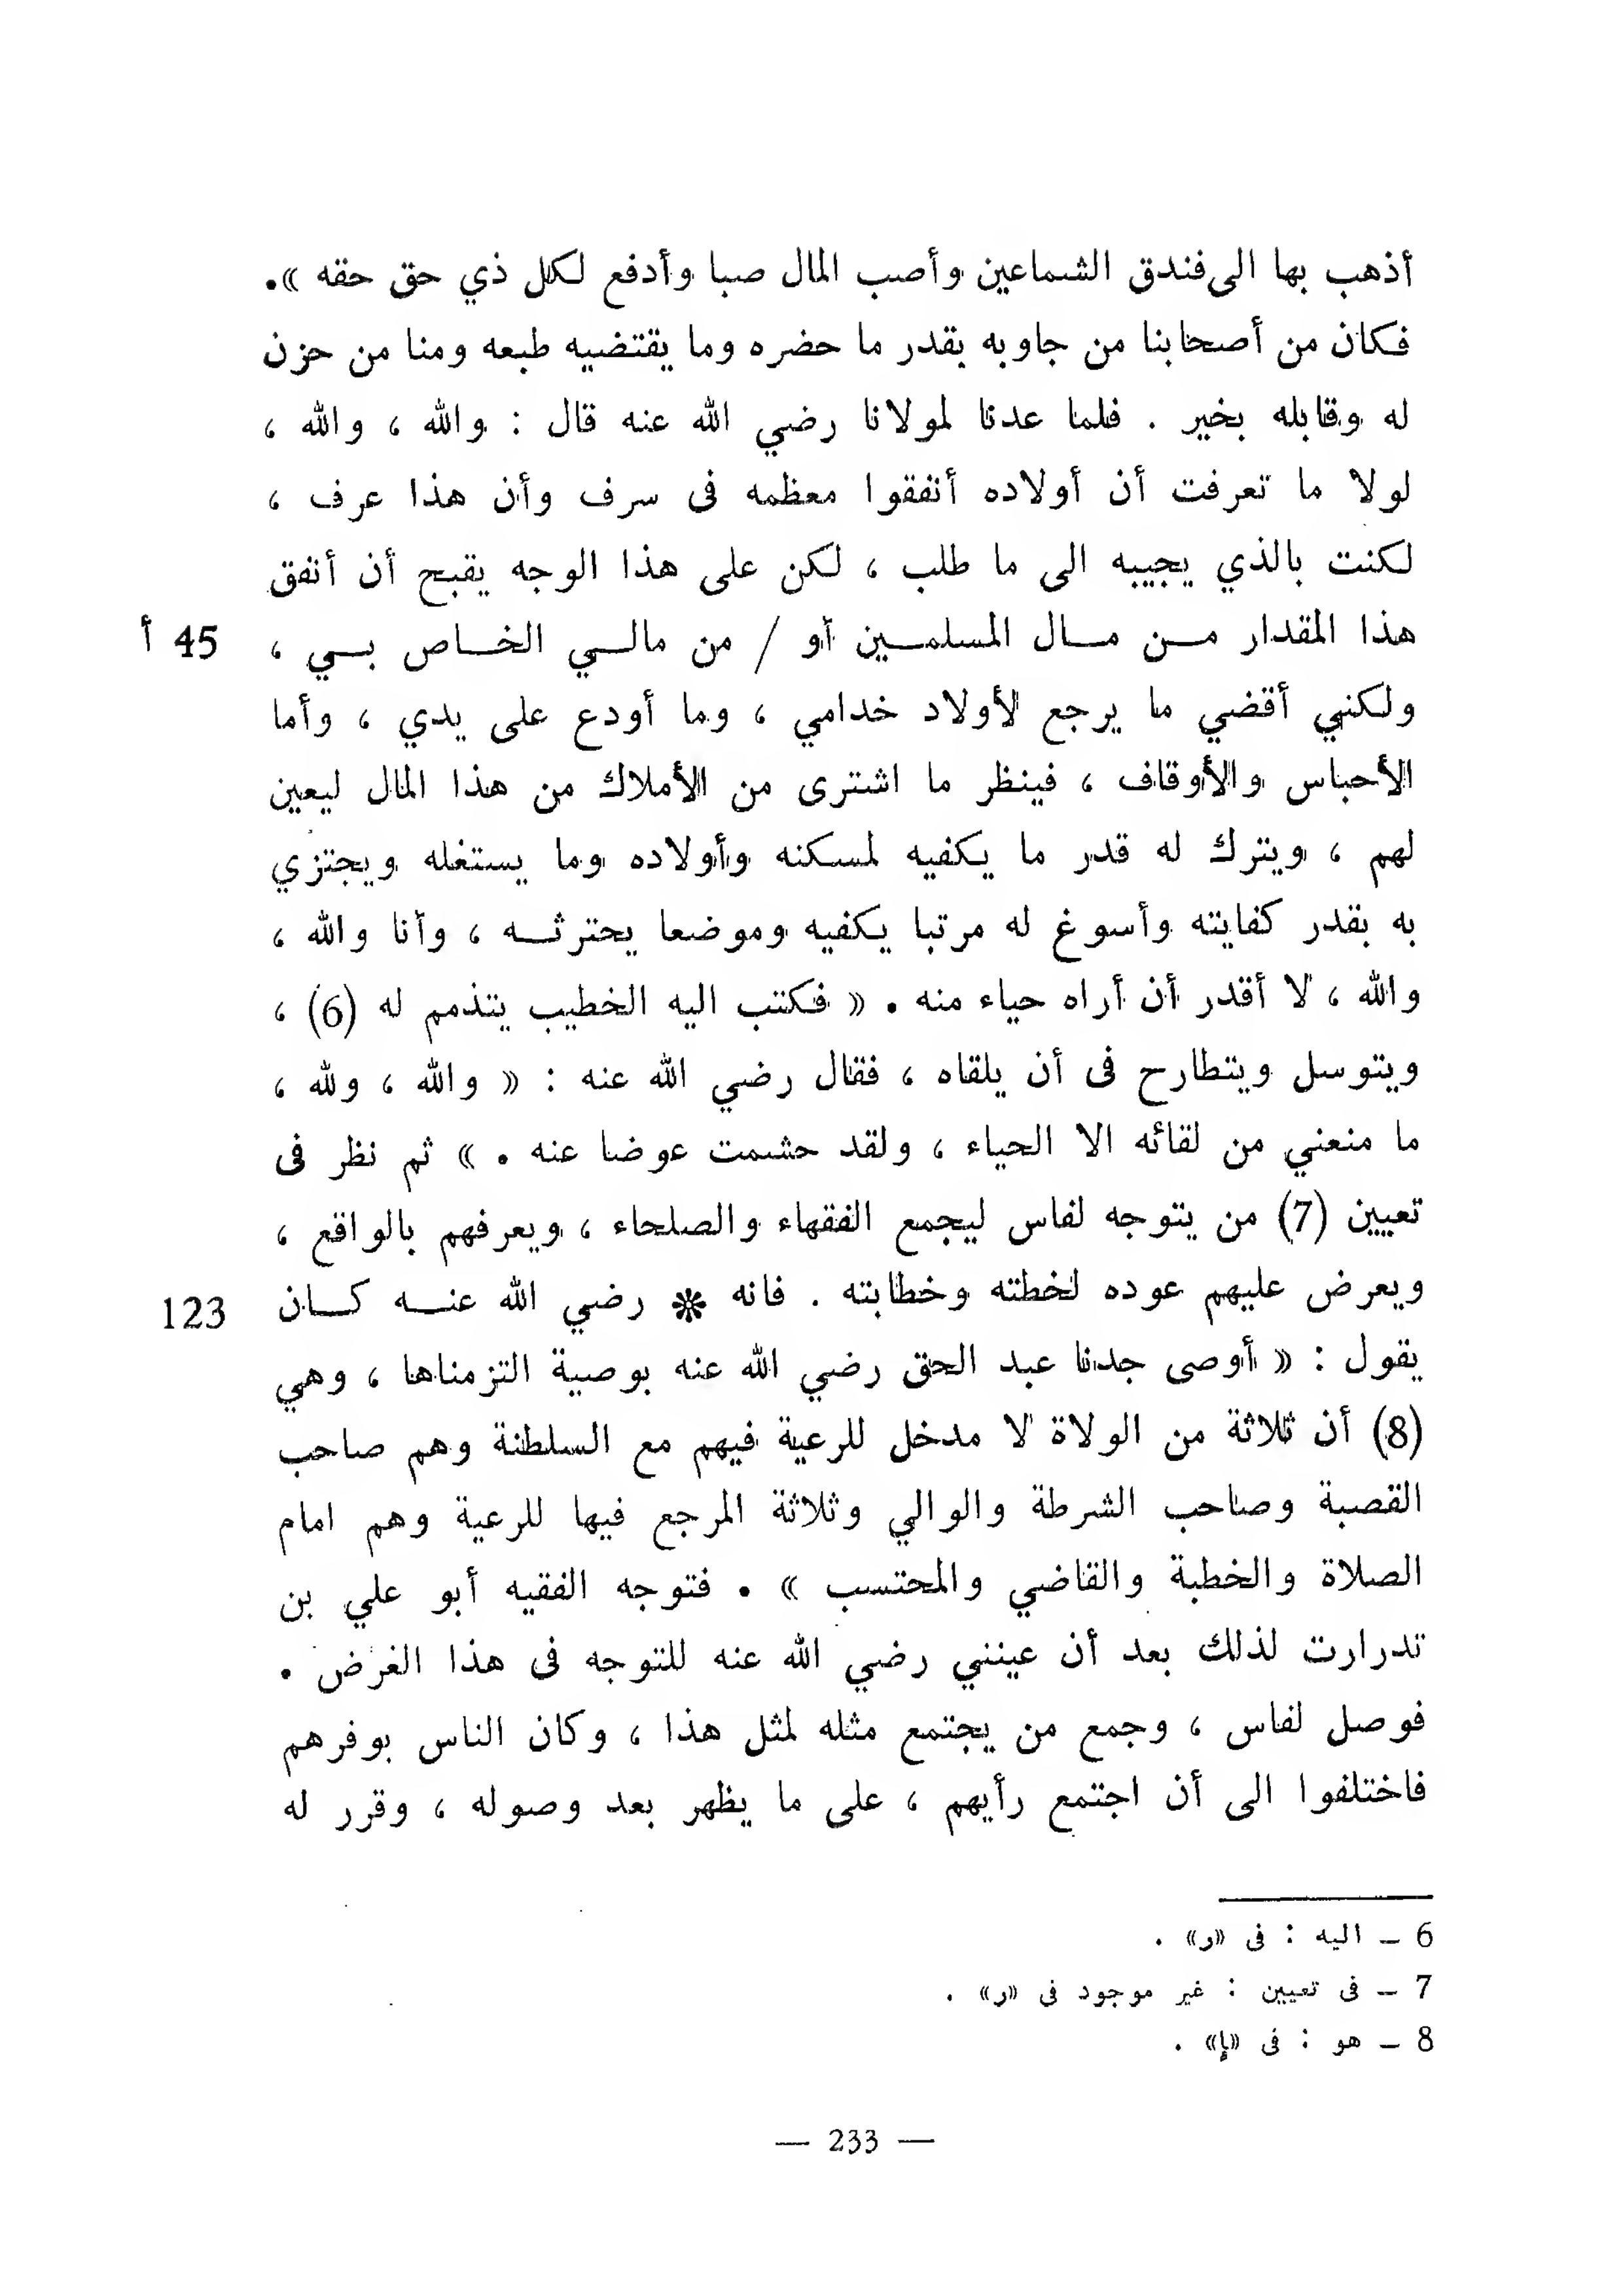 أذهب بها الى فندق الشماعين وأصب المال صبا وأدفع لكل ذي حق حقه ».
فكان من أصحابنا من جاوبه بقدر ما حضره وما يقتضيه طبعه ومنا من حزن
له وقابله بخير . فلما عدنا لمولانا رضي الله عنه قال : والله ، والله ،
لولا ما تعرفت أن أولاده أنفقوا معظمه فى سرف وأن هذا عرف ،
لكنت بالذي يجيبه الى ما طلب ، لكن على هذا الوجه يقبح أن أنفق
هذا المقدار من مال المسلمين أو / من مالي الخاص بي ، 45 أ
ولكني أقضي ما يرجع لأولاد خدامي ، وما أودع على يدي ، وأما
الأحباس والأوقاف ، فينظر ما اشترى من الأملاك من هذا المال ليعين
لهم ، ويترك له قدر ما يكفيه لمسكنه وأولاده وما يستغله ويجتزي
به بقدر كفايته وأسوغ له مرتبا يكفيه وموضعا يحترثه ، وأنا والله ،
والله ، لا أقدر أن أراه حياء منه . « فكتب اليه الخطيب يتذمم له (6) ،
ويتوسل ويتطارح فى أن يلقاه ، فقال رضي الله عنه : « والله ، ولله ،
ما منعني من لقائه الا الحياء ، ولقد حشمت عوضا عنه . » ثم نظر فى
تعيين (7) من يتوجه لفاس ليجمع الفقهاء والصلحاء ، ويعرفهم بالواقع ،
ويعرض عليهم عوده لخطته وخطابته . فانه * رضي الله عنه كان 123
يقول : « أوصى جدنا عبد الحق رضي الله عنه بوصية التزمناها ، وهي
(8) أن ثلاثة من الولاة لا مدخل للرعية فيهم مع السلطنة وهم صاحب
القصبة وصاحب الشرطة والوالي وثلاثة المرجع فيها للرعية وهم امام
الصلاة والخطبة والقاضي والمحتسب » . فتوجه الفقيه أبو علي بن
تدرارت لذلك بعد أن عينني رضي الله عنه للتوجه فى هذا الغرض .
فوصل لفاس ، وجمع من يجتمع مثله لمثل هذا ، وكان الناس بوفرهم
فاختلفوا الى أن اجتمع رأيهم ، على ما يظهر بعد وصوله ، وقرر له
6 – اليه : فى «ر» .
7 – فى تعيين : غير موجود فى «ر» .
8 – هو : فى «إ» .
— 233 —